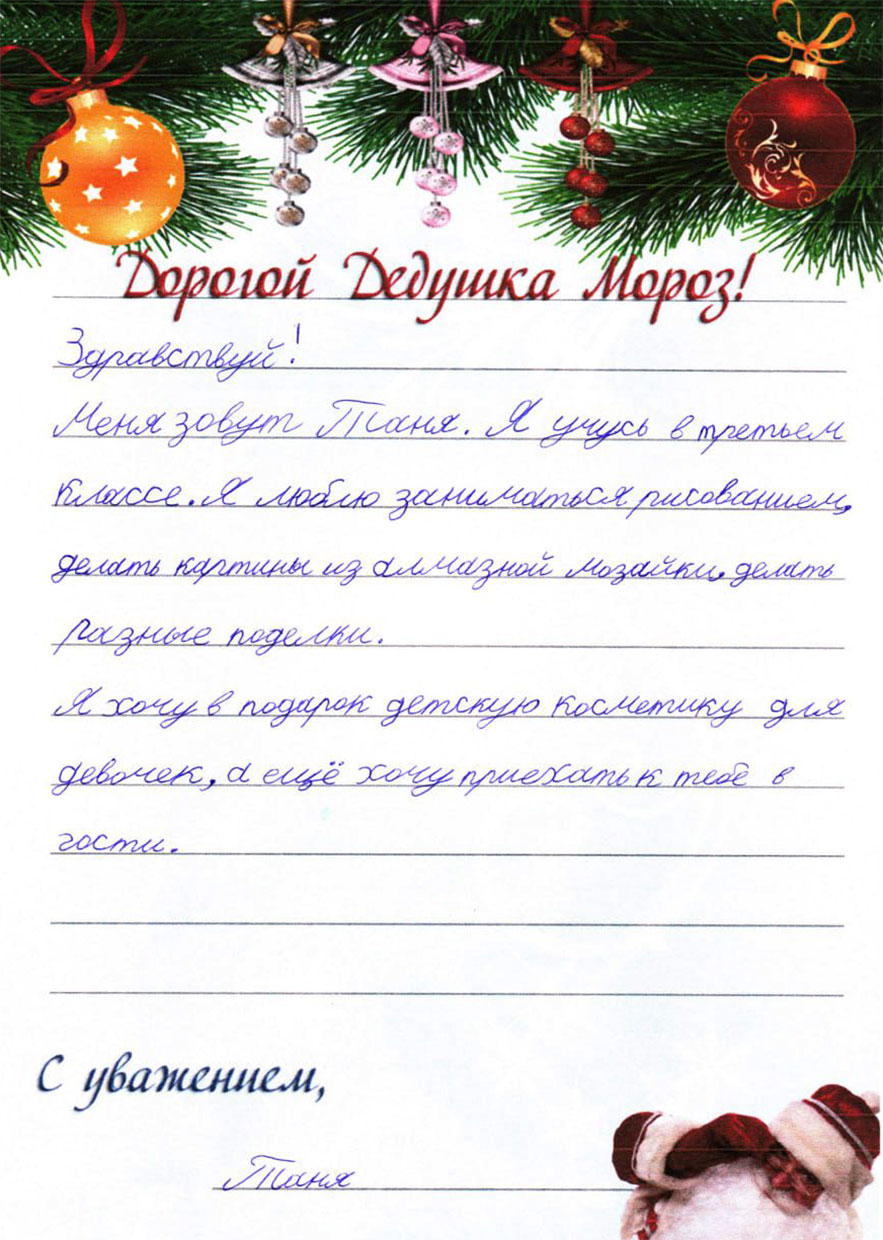 Дорогой Дедушка Мороз!
Здравствуй!
Меня зовут Таня. Я учусь в третьем
классе. Я люблю заниматься рисованием,
делать картины из алмазной мозайки, делать
разные поделки.
Я хочу в подарок детскую косметику для
девочек, а ещё хочу приехать к тебе в
гости.
С уважением,
Таня